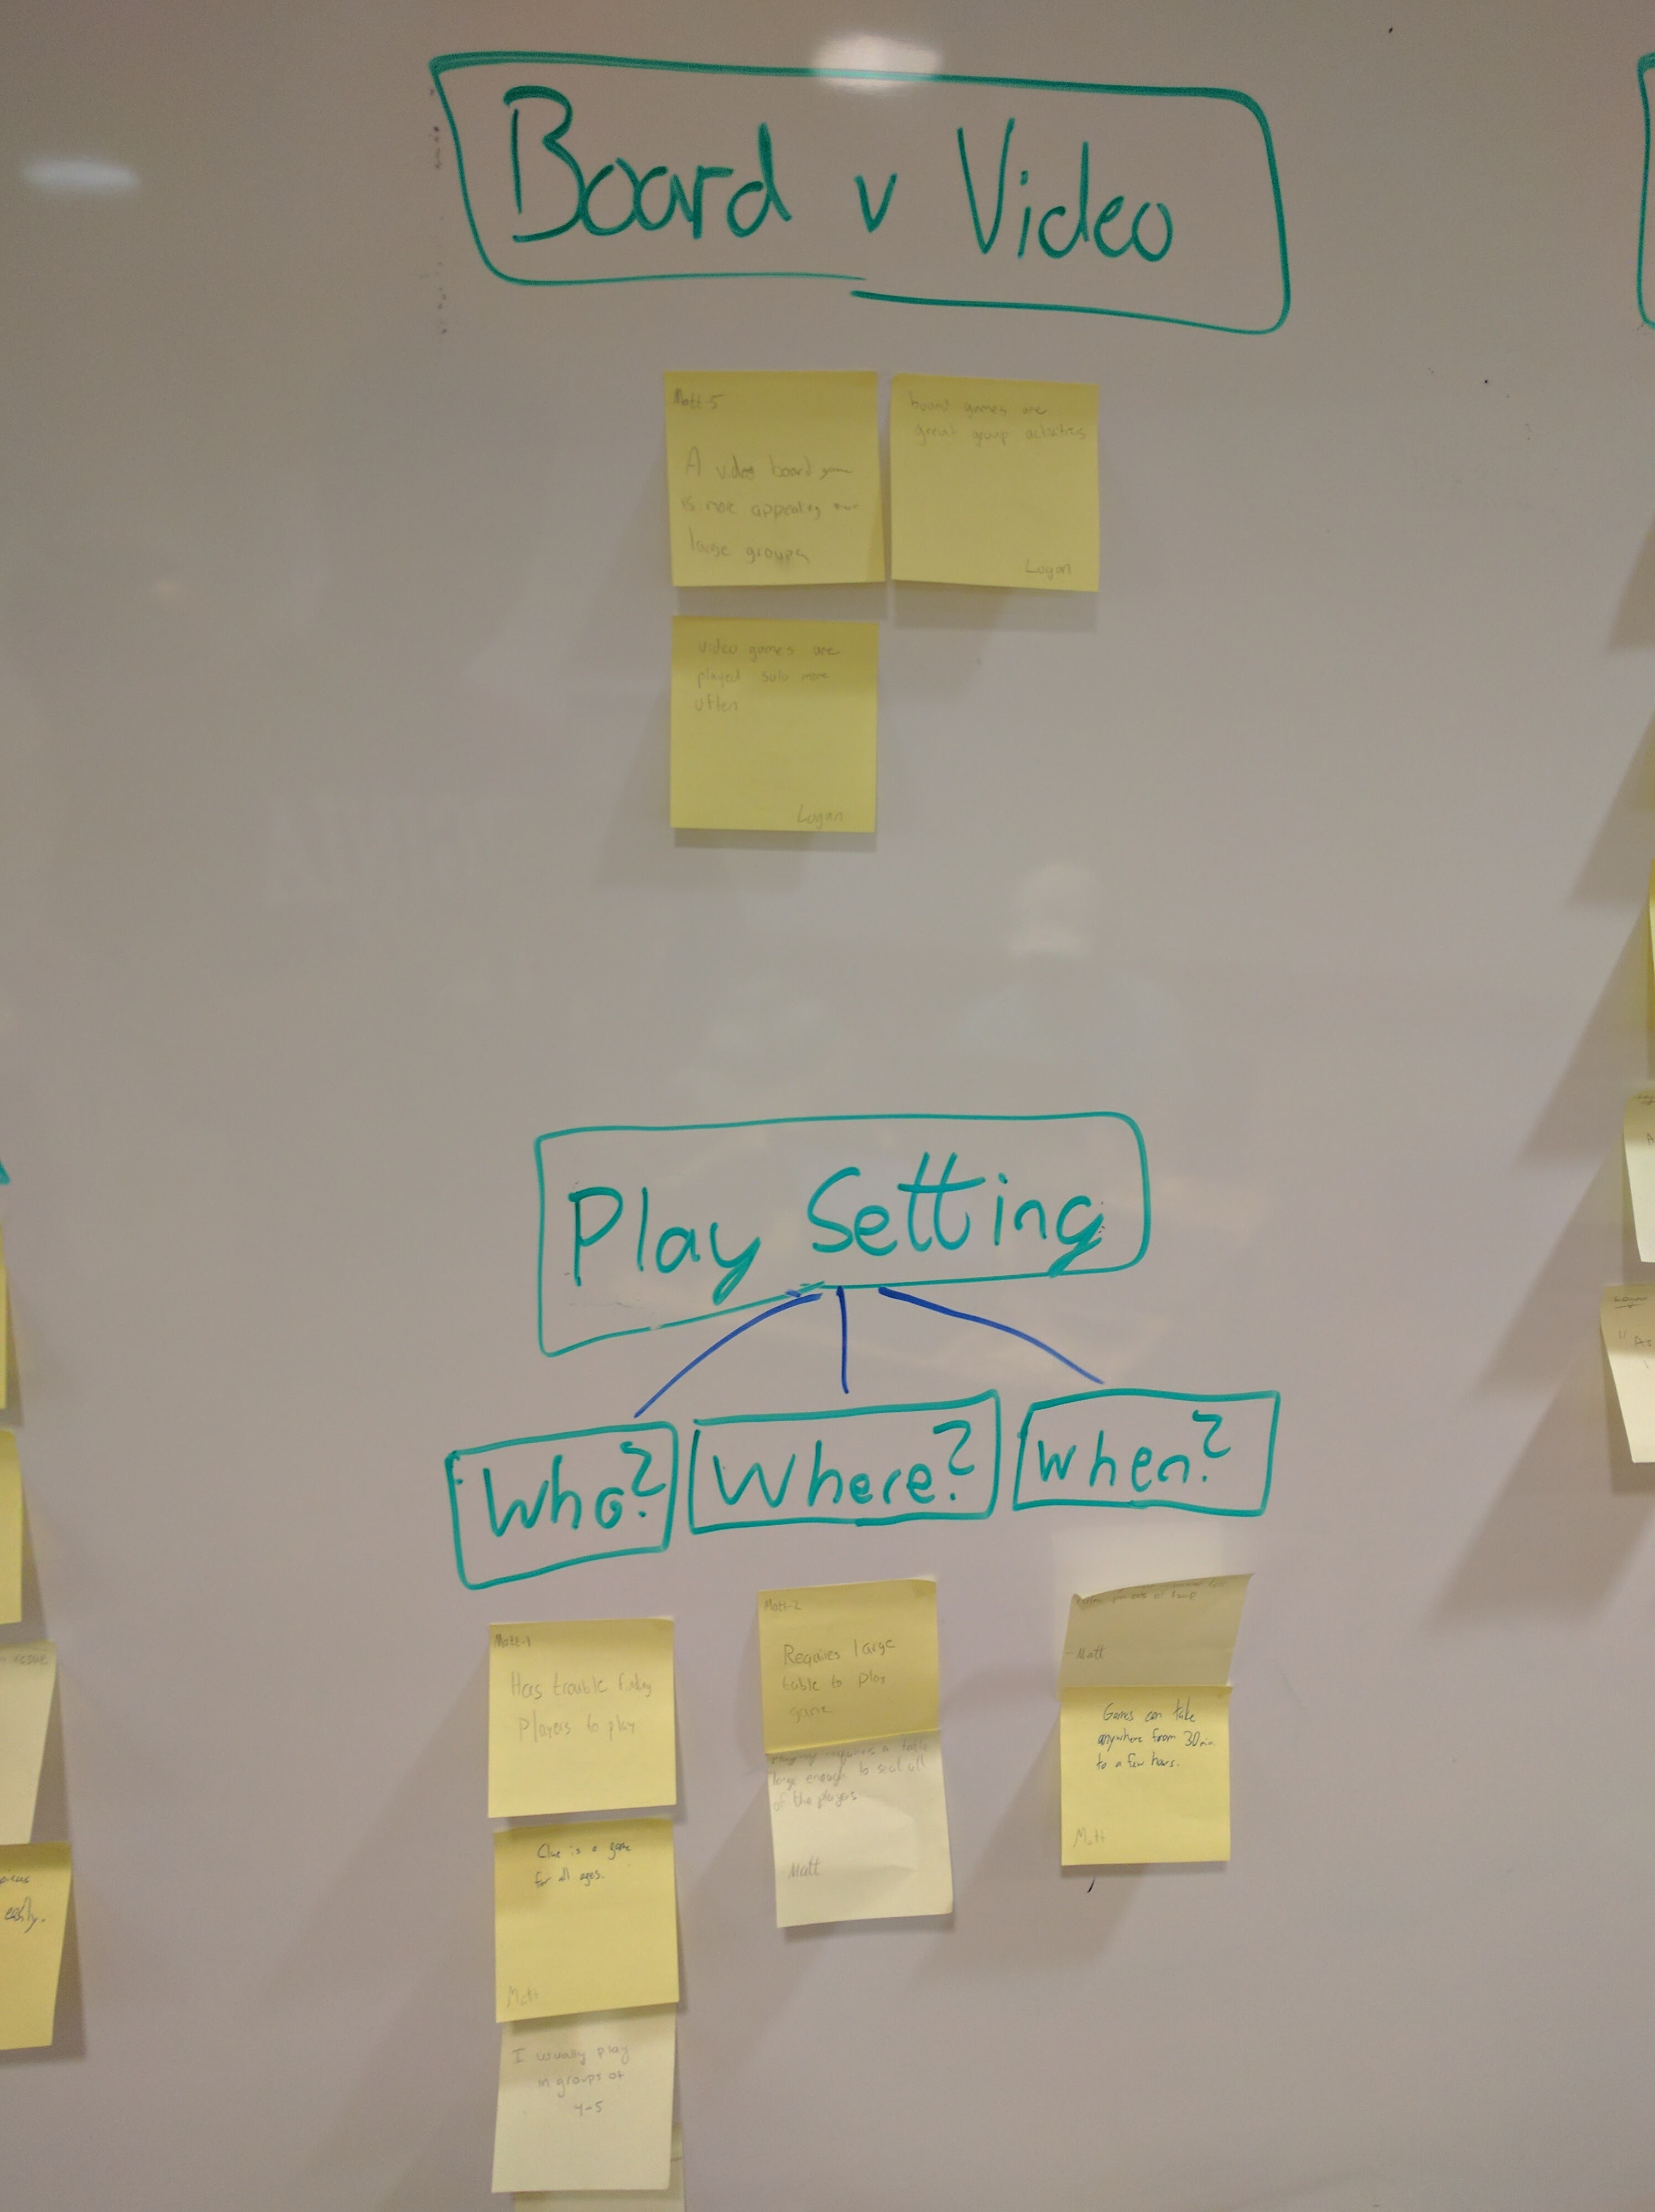 Board v Video
Matt-5
A video board game
is not appealing
large groups
board games are
great group activities
Logan
video games are
played solo more
often
Logan
Play Setting
Who?
Where?
When?
Matt-1
Has trouble finding
Players to play
Clue is a game
for all ages.
Matt
I usually play
in groups of
4-5
Matt-2
Requires large
table to play
game
playing requires a table
large enough to seat all
of the players
-Matt
-Matt
Games can take
anywhere from 30min.
to a few hours.
Matt
issue
easily.
"As